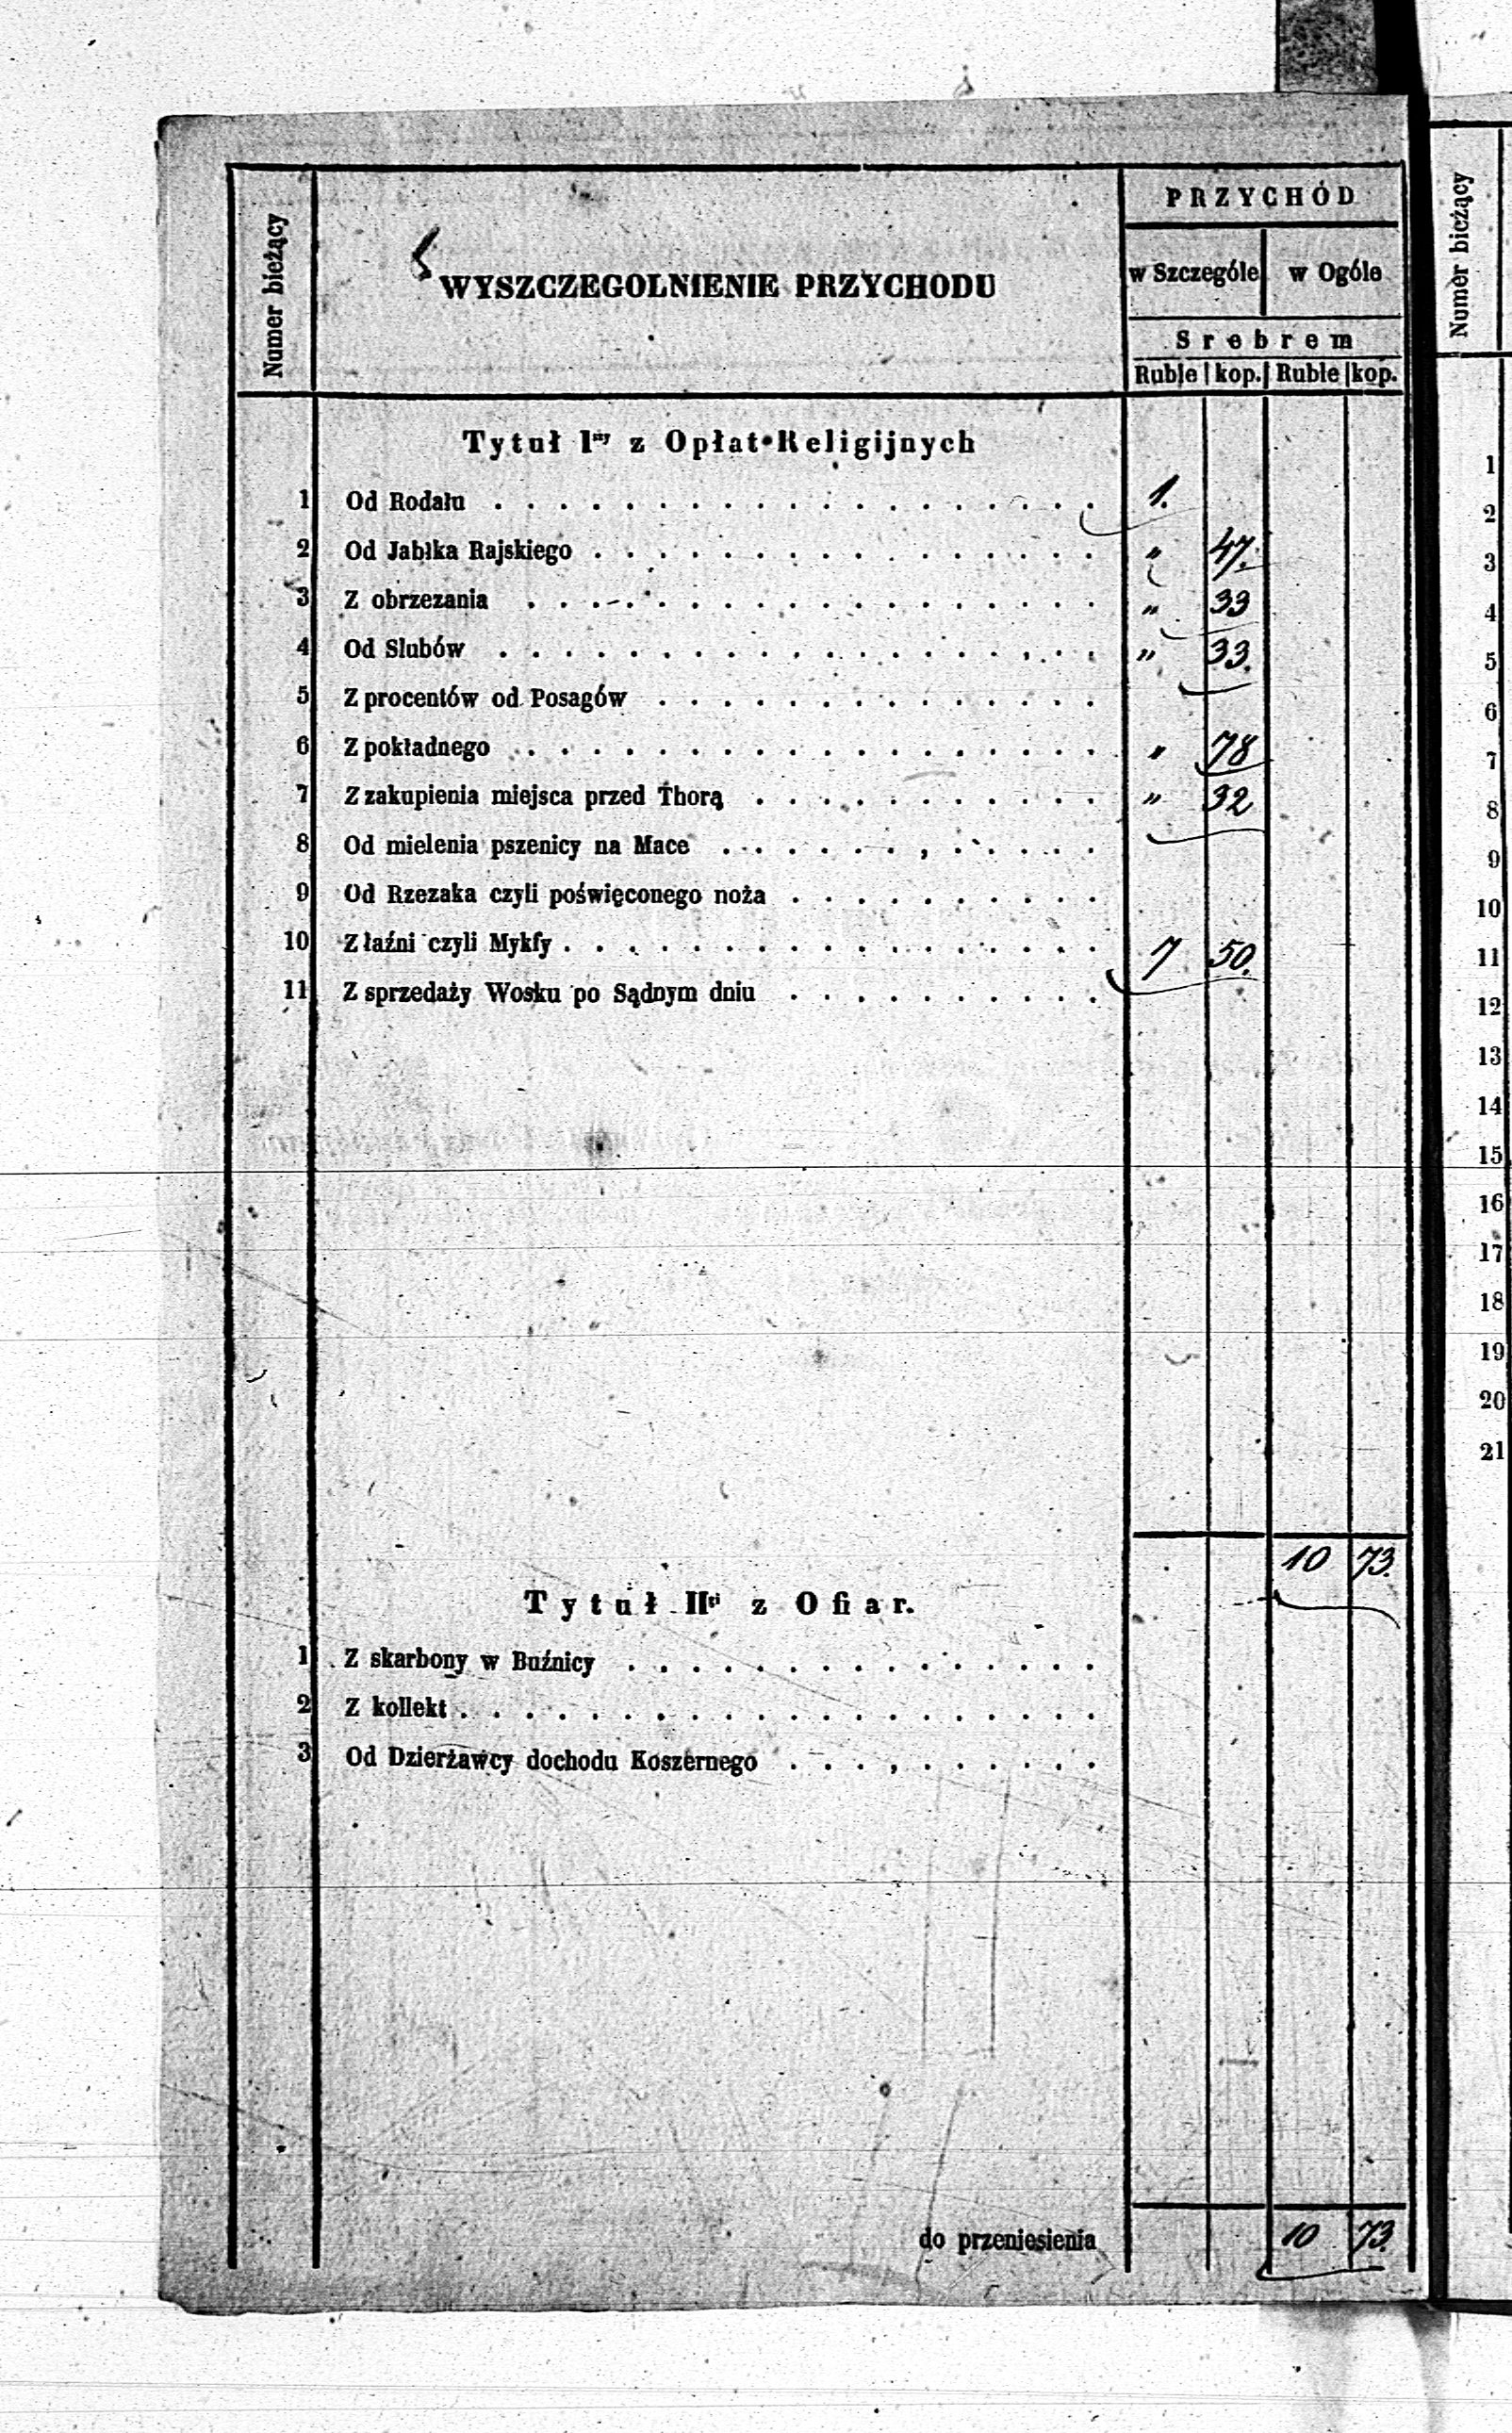 Numer bieżący
WYSZCZEGOLNIENIE PRZYCHODU
PRZYCHÓD
w Szczególe w Ogóle
Srebrem
Ruble kop. Ruble kop.
Tytuł Iszy z Opłat Religijnych
1 Od Rodału . . . . . . . . . . . . . . . . . . . 1.
2 Od Jabłka Rajskiego . . . . . . . . . . . . . . . . " 47.
3 Z obrzezania . . . . . . . . . . . . . . . . . . " 33
4 Od Slubów . . . . . . . . . . . . . . . . . . . " 33.
5 Z procentów od Posagów . . . . . . . . . . . . . .
6 Z pokładnego . . . . . . . . . . . . . . . . . . " 78
7 Z zakupienia miejsca przed Thorą . . . . . . . . . . . " 32
8 Od mielenia pszenicy na Mace . . . . . . . . . . . .
9 Od Rzezaka czyli poświęconego noża . . . . . . . . . .
10 Z łaźni czyli Mykfy . . . . . . . . . . . . . . . . . 7 50.
11 Z sprzedaży Wosku po Sądnym dniu . . . . . . . . . .
10 73.
Tytuł IIgi z Ofiar.
1 Z skarbony w Buźnicy . . . . . . . . . . . . . . .
2 Z kollekt . . . . . . . . . . . . . . . . . . . .
3 Od Dzierżawcy dochodu Koszernego . . . . . . . . . .
do przeniesienia 10 73.
Numer bieżący
1
2
3
4
5
6
7
8
9
10
11
12
13
14
15
16
17
18
19
20
21